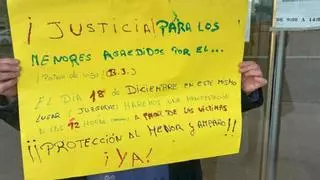 ¡ JUSTICIA PARA LOS
MENORES AGREDIDOS POR EL...
(B.J.)
EL DIA 18 de DICIEMBRE EN ESTE MISMO
LUGAR (JUZGADO) HAREMOS UNA
A LAS 12 HORAS A FAVOR DE LAS VÍCTIMAS
¡¡PROTECCIÓN AL MENOR Y AMPARO!!
¡YA!